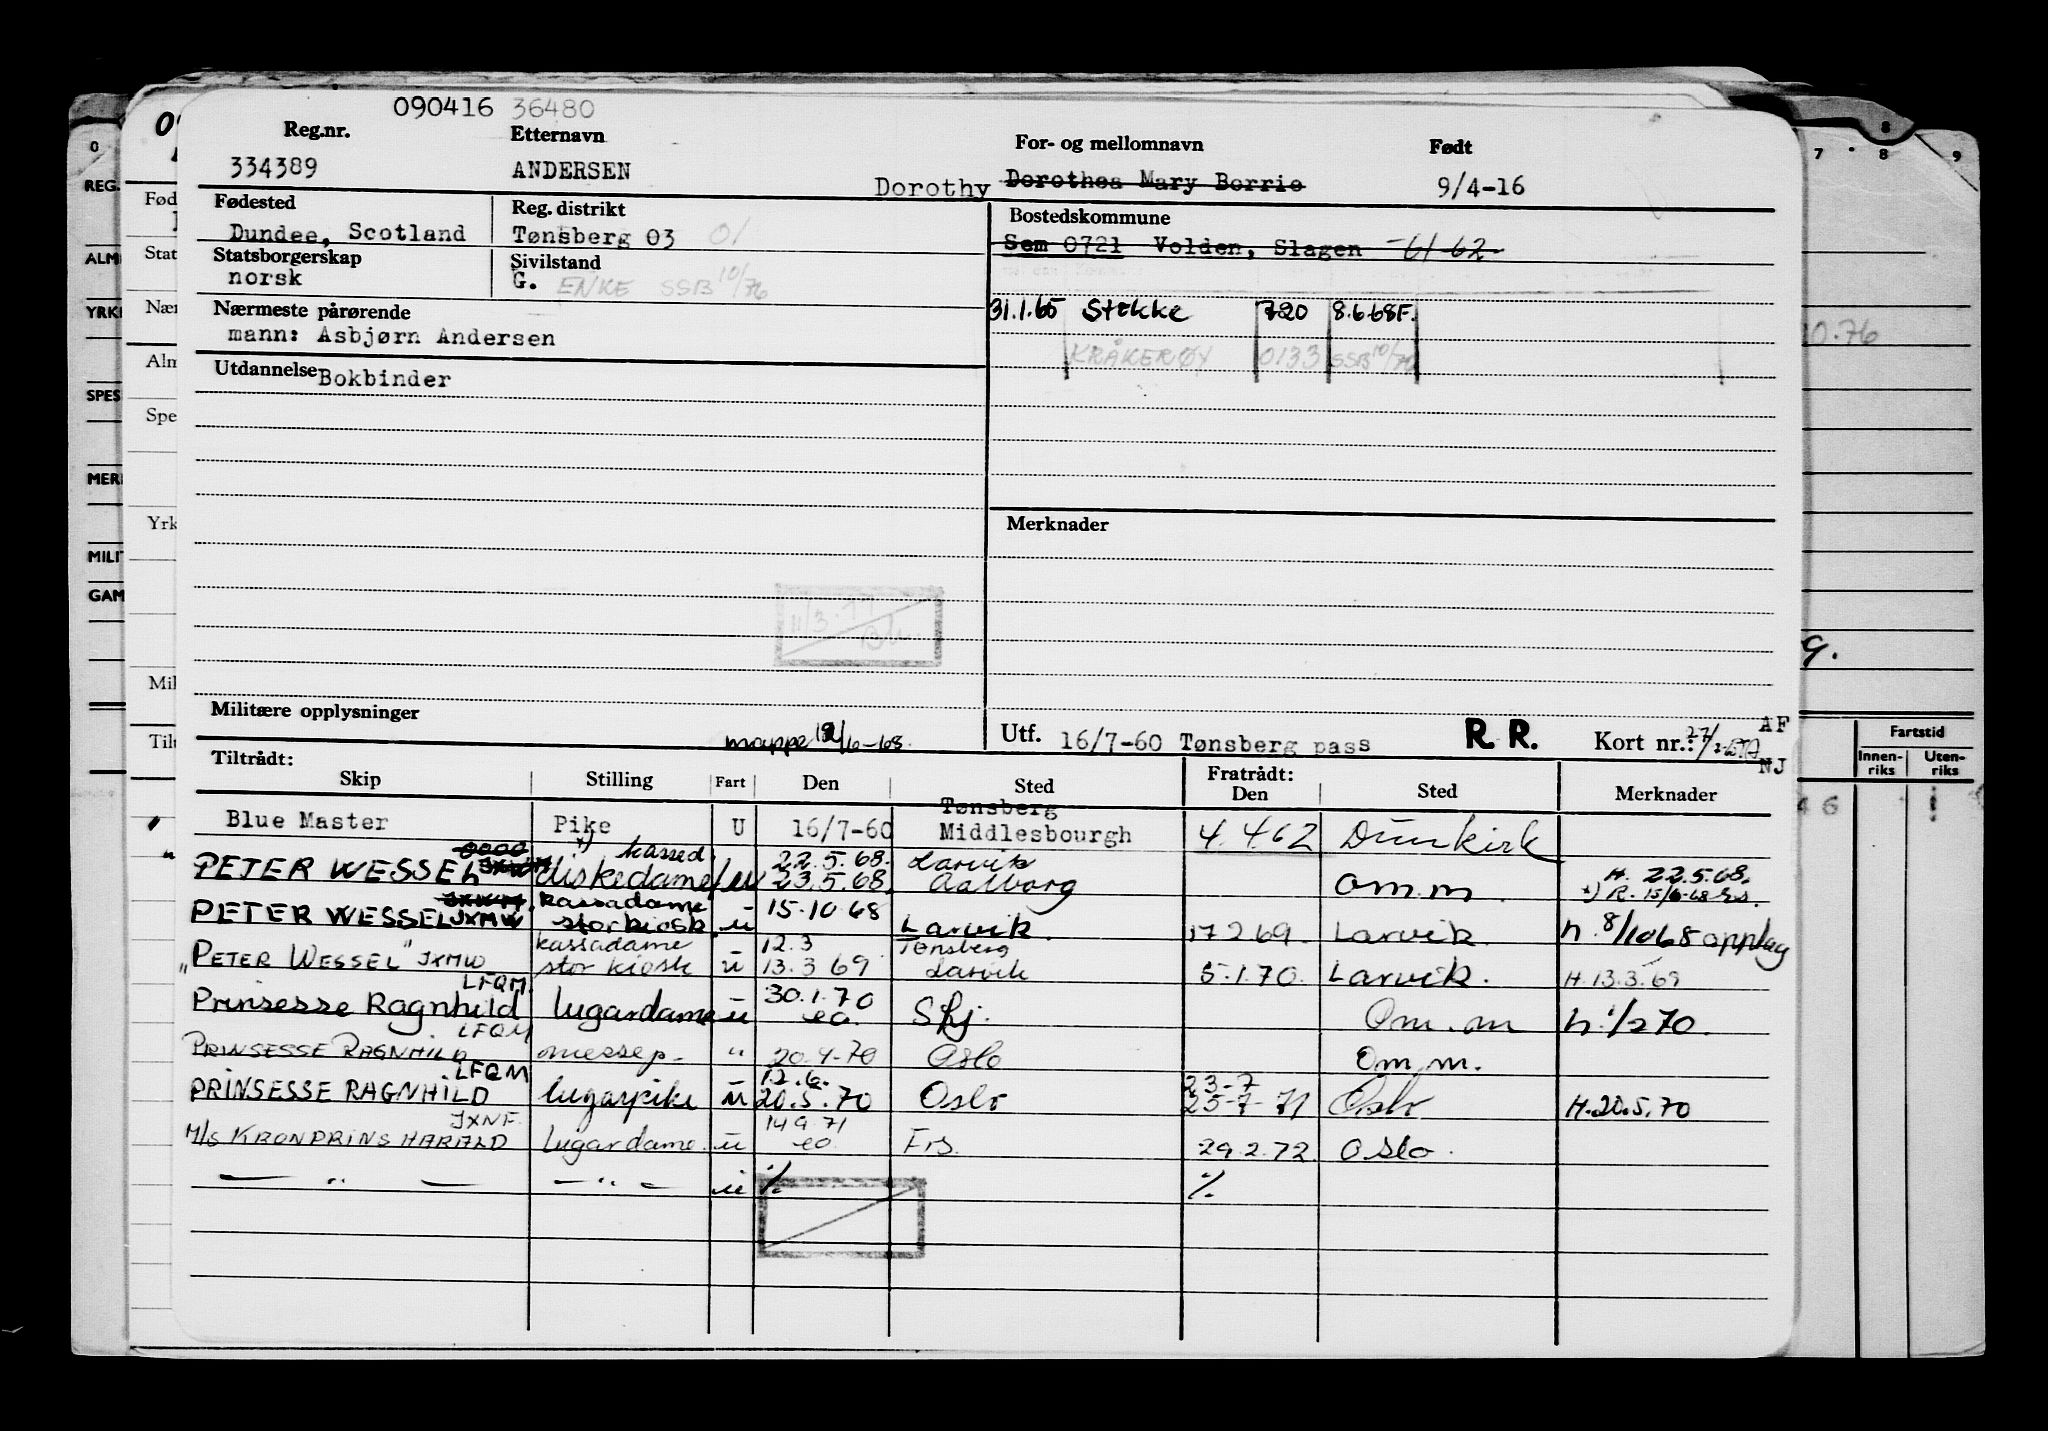 090416 36480
Reg.nr. Etternavn For- og mellomnavn Født
334389 ANDERSEN Dorothy Dorothea Mary Borrie 9/4-16
Fødested Reg. distrikt Bostedskommune
Dundee, Scotland Tønsberg 03 01 Sem 0721 Volden, Slagen -61-62
Statsborgerskap Sivilstand
norsk G. ENKE SSB 10/76
Nærmeste pårørende 31.1.65 Stokke 720 8.6.68F.
mann: Asbjørn Andersen KRÅKERØY 0133 SSB 10/76
Utdannelse Bokbinder
Merknader
11/3.77
Militære opplysninger mappe 12/6-68. Utf. 16/7-60 Tønsberg pass R. R. Kort nr.: AF
NJ
Tiltrådt: Fratrådt:
Skip Stilling Fart Den Sted Den Sted Merknader
Blue Master Pike U 16/7-60 Tønsberg Middlesbourgh 4.4.62 Dunkirk
0000 x) kassed 22.5.68. Larvik
PETER WESSEL diskedame/ 23.5.68. Aalborg om.m. H. 22.5.68.
x) R. 15/6-68
PETER WESSEL JXMW kassadame storkiosk u 15.10 68 Larvik 17 2 69. Larvik h. 8/10 68 opplag
"PETER WESSEL" JXMW kassadame stor kiosk u 12.3 13.3 69 Tønsberg Larvik 5.1.70. Larvik. H. 13.3.69
LFQM.
Prinsesse Ragnhild lugardame u 30.1.70 eo. Skj. Om.m h. 1/2 70.
LFQM
PRINSESSE RAGNHILD messep. " 20.4-70 Oslo Om.m.
LFQM
PRINSESSE RAGNHILD lugarpike u 12.6. 20.5.70 Oslo 23-7 25-7-71 Oslo H.20.5.70
JXNF.
M/S KRONPRINS HARALD lugardame. u 14 9.71 eo. Frs. 29.2.72. Oslo.
— " — — " — u ./. ./.
0 7 8 8 9
REG.
ALM
YRK
SPES
MER
MILI
GAM
Fød
Stat
Nær
Alm
Spe
Yrk
Mil
Tilt
0.76
9.
Fartstid
Innen-riks Uten-riks
46